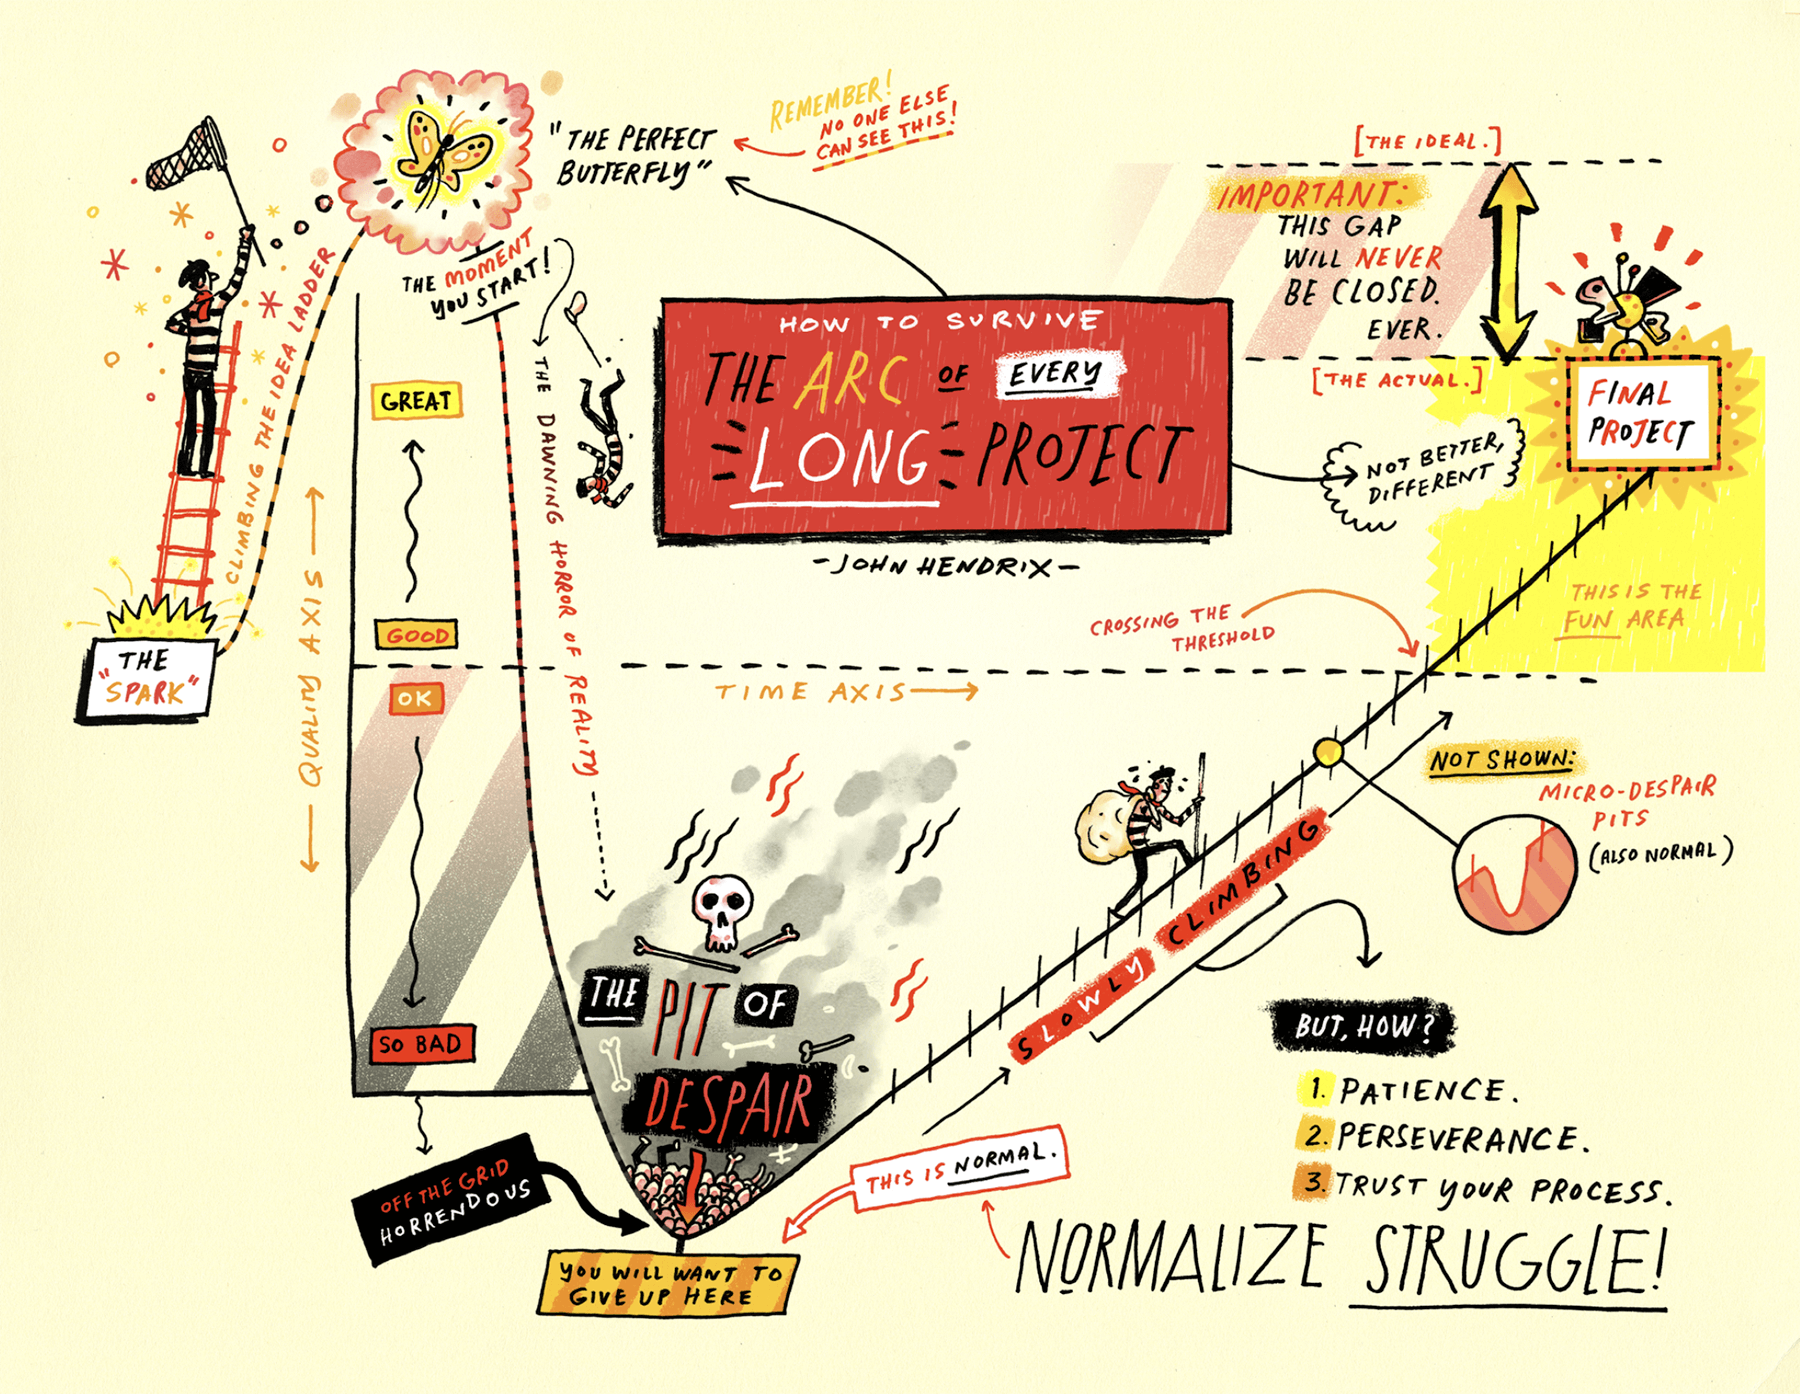 REMEMBER!
NO ONE ELSE
CAN SEE THIS!
"THE PERFECT
BUTTERFLY"
THE MOMENT
YOU START!
CLIMBING THE IDEA LADDER
THE
"SPARK"
← QUALITY AXIS →
GREAT
GOOD
OK
SO BAD
OFF THE GRID
HORRENDOUS
THE DAWNING HORROR OF REALITY
HOW TO SURVIVE
THE ARC OF EVERY
LONG PROJECT
-JOHN HENDRIX-
[THE IDEAL.]
IMPORTANT:
THIS GAP
WILL NEVER
BE CLOSED.
EVER.
[THE ACTUAL.]
FINAL
PROJECT
NOT BETTER,
DIFFERENT
THIS IS THE
FUN AREA
CROSSING THE
THRESHOLD
TIME AXIS →
NOT SHOWN:
MICRO-DESPAIR
PITS
(ALSO NORMAL)
SLOWLY CLIMBING
THE PIT OF
DESPAIR
YOU WILL WANT TO
GIVE UP HERE
THIS IS NORMAL.
BUT, HOW?
1. PATIENCE.
2. PERSEVERANCE.
3. TRUST YOUR PROCESS.
NORMALIZE STRUGGLE!